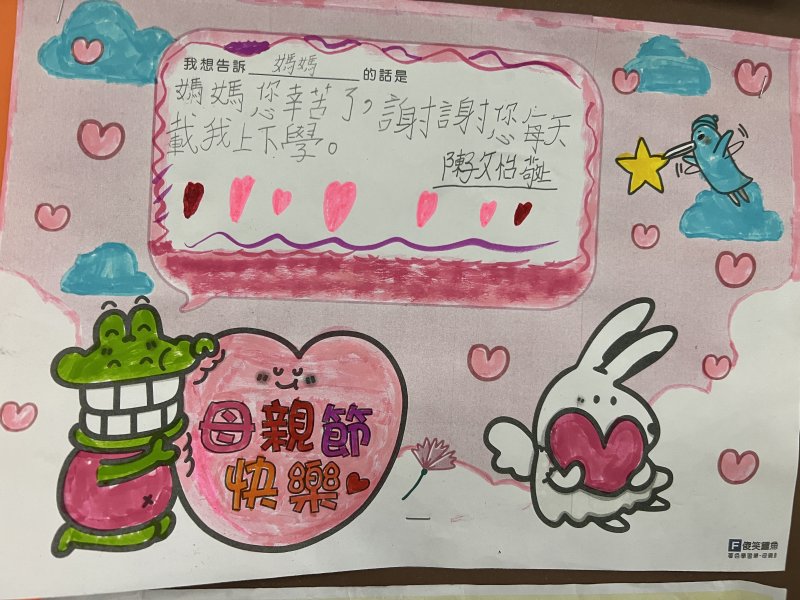 我想告訴 媽媽 的話是
媽媽您辛苦了,謝謝您每天
載我上下學。
陳文怡敬上
母親節
快樂
F傻笑鱷魚